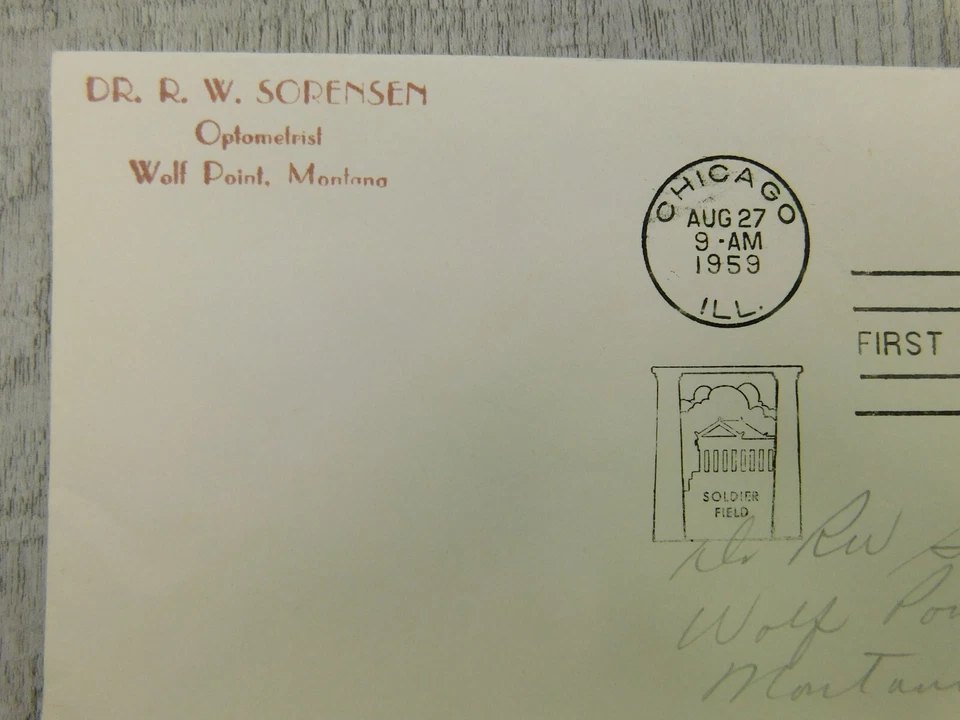 DR. R. W. SORENSEN
Optometrist
Wolf Point, Montana
CHICAGO
AUG 27
9 - AM
1959
ILL.
FIRST
SOLDIER
FIELD
Dr RW S
Wolf Poi
Montan